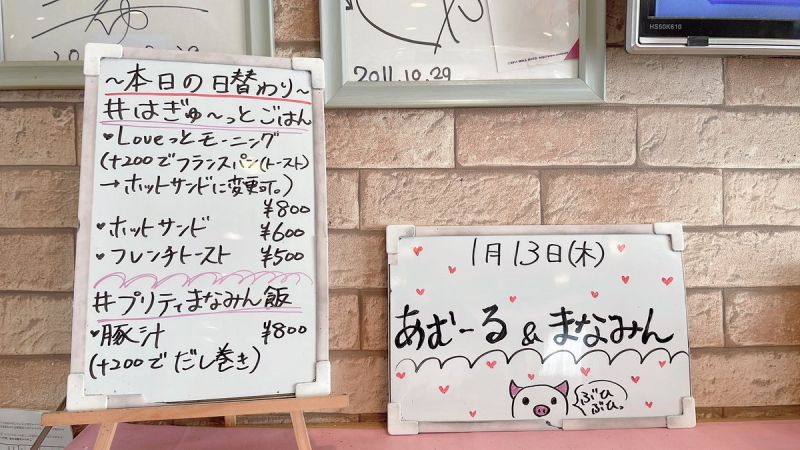 2011.10.29
HS50K610
～本日の日替わり～
#はぎゅ～っとごはん
♥Loveっとモーニング
(+200でフランスパン(トースト)
→ホットサンドに変更可。)
¥800
♥ホットサンド ¥600
♥フレンチトースト ¥500
#プリティまなみん飯
♥豚汁 ¥800
(+200でだし巻き)
1月13日(木)
あむーる&まなみん
ぶひ
ぶひ。